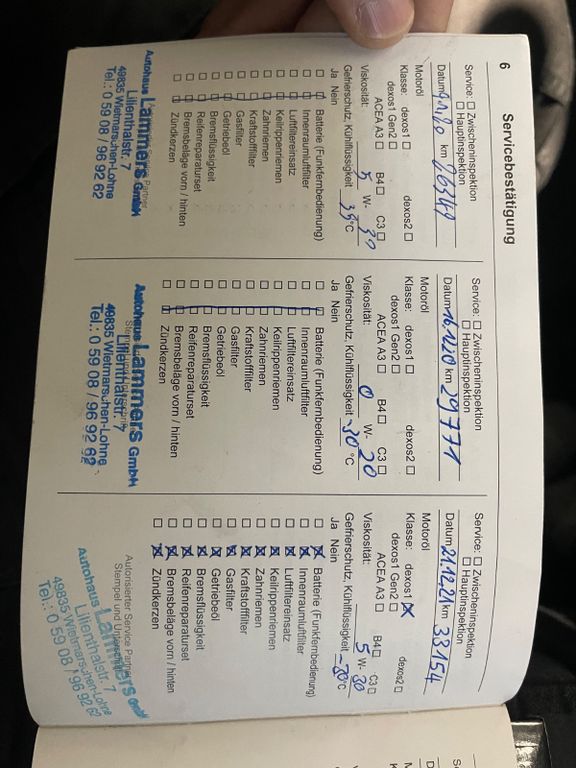 6
Servicebestätigung
Service: Zwischeninspektion
Hauptinspektion
Datum km
Motoröl
Klasse: dexos1 dexos2
dexos1 Gen2
ACEA A3 B4 C3
Viskosität: 5 W- 30
Gefrierschutz, Kühlflüssigkeit °C
Ja Nein
Batterie (Funkfernbedienung)
Innenraumluftfilter
Luftfiltereinsatz
Keilrippenriemen
Zahnriemen
Kraftstofffilter
Gasfilter
Getriebeöl
Bremsflüssigkeit
Reifenreparaturset
Bremsbeläge vorn / hinten
Zündkerzen
Partner
Autohaus Lammers GmbH
Lilienthalstr. 7
49835 Wietmarschen-Lohne
Tel.: 0 59 08 / 96 92 62
Service: Zwischeninspektion
Hauptinspektion
Datum km 29771
Motoröl
Klasse: dexos1 dexos2
dexos1 Gen2
ACEA A3 B4 C3
Viskosität: 0 W- 20
Gefrierschutz, Kühlflüssigkeit -30 °C
Ja Nein
Batterie (Funkfernbedienung)
Innenraumluftfilter
Luftfiltereinsatz
Keilrippenriemen
Zahnriemen
Kraftstofffilter
Gasfilter
Getriebeöl
Bremsflüssigkeit
Reifenreparaturset
Bremsbeläge vorn / hinten
Zündkerzen
Autohaus Lammers GmbH
Lilienthalstr. 7
49835 Wietmarschen-Lohne
Tel.: 0 59 08 / 96 92 62
Service: Zwischeninspektion
Hauptinspektion
Datum 21.12.21 km 33154
Motoröl
Klasse: dexos1 dexos2
dexos1 Gen2
ACEA A3 B4 C3
Viskosität: 5 W- 30
Gefrierschutz, Kühlflüssigkeit -30 °C
Ja Nein
Batterie (Funkfernbedienung)
Innenraumluftfilter
Luftfiltereinsatz
Keilrippenriemen
Zahnriemen
Kraftstofffilter
Gasfilter
Getriebeöl
Bremsflüssigkeit
Reifenreparaturset
Bremsbeläge vorn / hinten
Zündkerzen
Autorisierter Service Partner
Stempel und
Autohaus Lammers GmbH
Lilienthalstr. 7
49835 Wietmarschen-Lohne
Tel.: 0 59 08 / 96 92 62